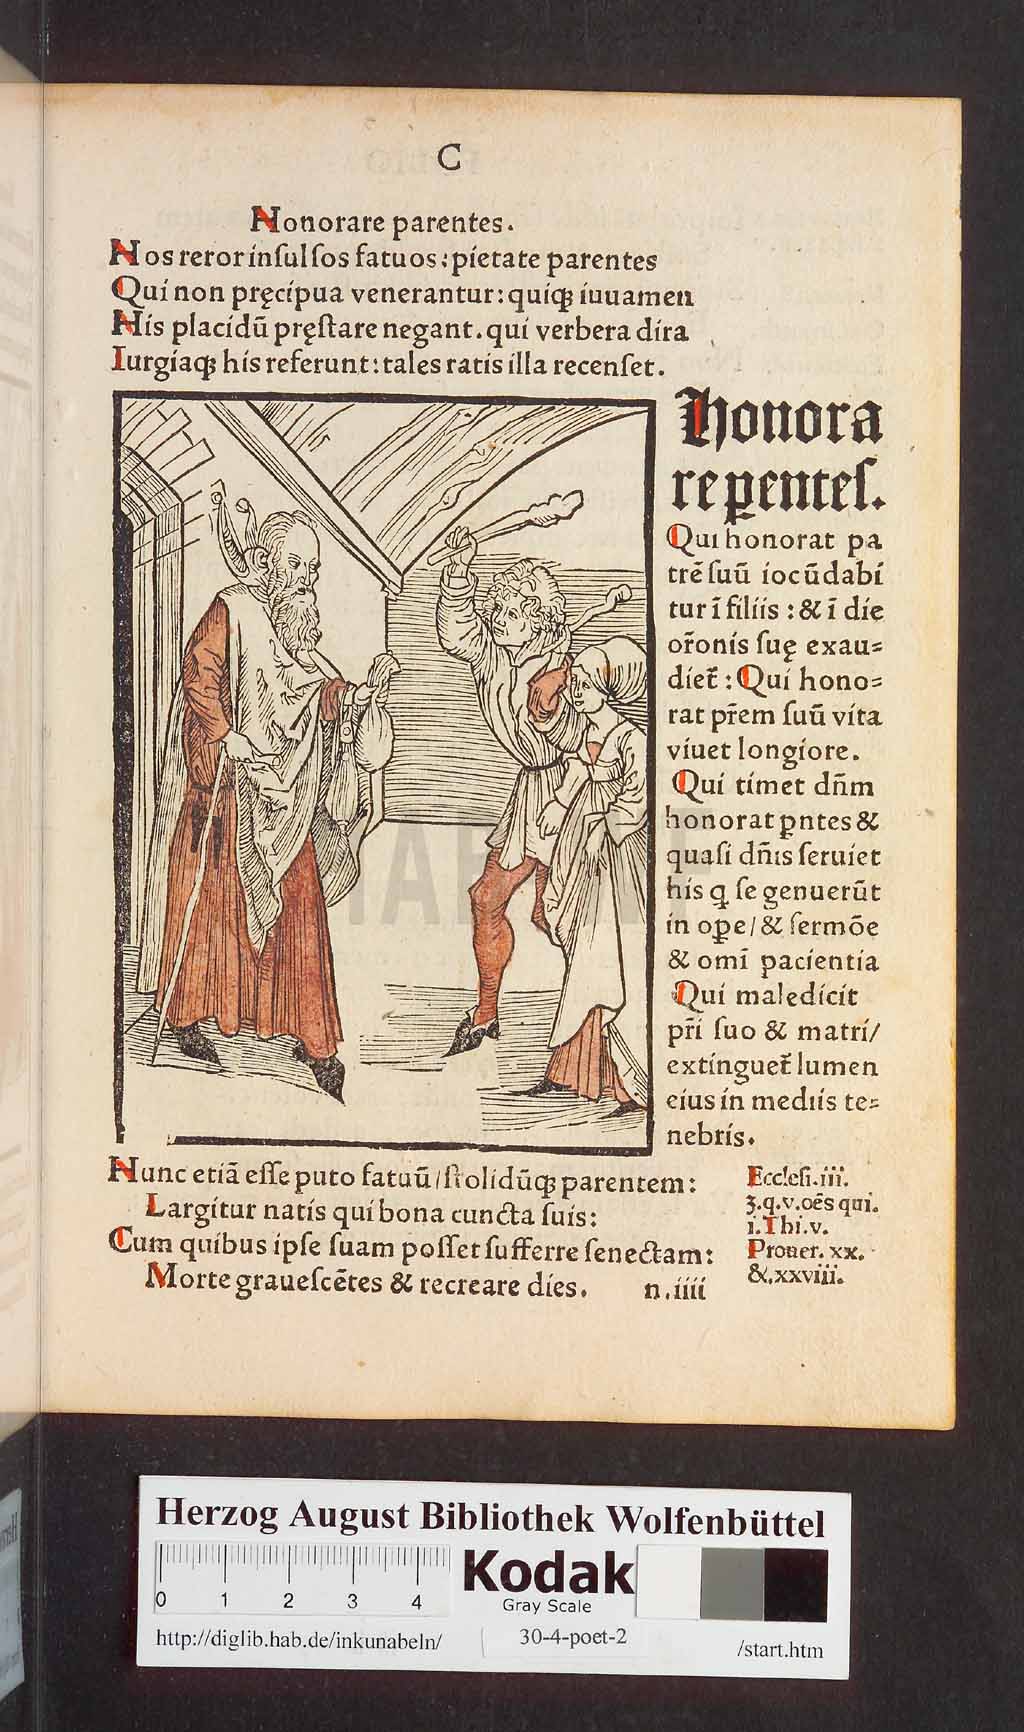 C
Nonorare parentes.
Nos reror insulsos fatuos: pietate parentes
Qui non pręcipua venerantur: quiqꝫ iuuamen
Nis placidū pręstare negant. qui verbera dira
Iurgiaqꝫ his referunt: tales ratis illa recenset.
Honora
re ꝑentes.
Qui honorat pa
trē suū iocūdabi
tur ī filiis: & ī die
or̄onis suę exau-
diet̄: Qui hono-
rat pr̄em suū vita
viuet longiore.
Qui timet dn̄m
honorat ꝑntes &
quasi dn̄is seruiet
his q̨ se genuerūt
in oꝑe/ & sermōe
& omī pacientia
Qui maledicit
pr̄i suo & matri/
extinguet̄ lumen
eius in mediis te-
nebris.
Nunc etiā esse puto fatuū/stolidūqꝫ parentem:
Largitur natis qui bona cuncta suis:
Cum quibus ipse suam posset sufferre senectam:
Morte grauescētes & recreare dies. n.iiii
Ecclesi.iii.
3.q.v.oēs qui.
i.Thi.v.
Prouer. xx.
&.xxviii.
HAB
Herzog August Bibliothek Wolfenbüttel
0 1 2 3 4
Kodak
Gray Scale
http://diglib.hab.de/inkunabeln/ 30-4-poet-2 /start.htm